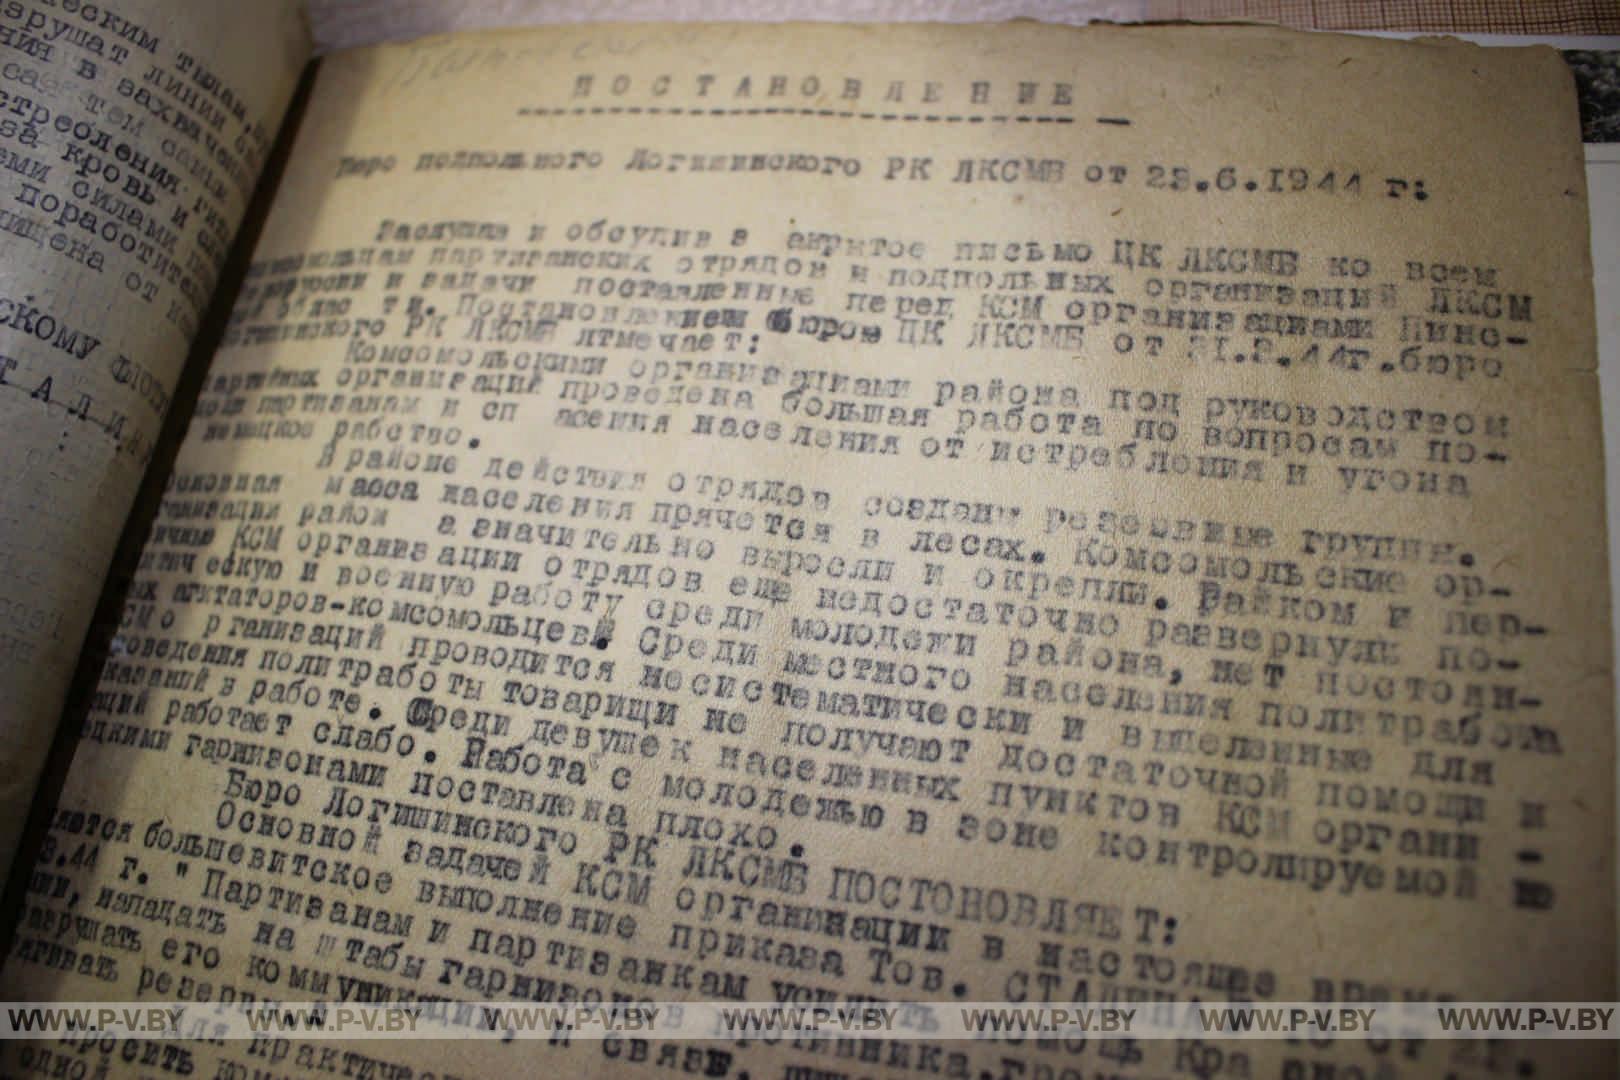 ческим тылам,
арушат линии
ния в захвачен
тем самым
стребления
за кровь и
еми силами
поработител
ищена от
СКОМУ
ТАЛИН
ПОСТАНОВЛЕНИЕ
Бюро подпольного Логишинского РК ЛКСМБ от 23.6.1944 г:
Заслушав и обсудив з акрытое письмо ЦК ЛКСМБ ко всем
комсомольцам партизанских отрядов и подпольных организаций ЛКСМ
и задачи поставленные перед КСМ организациями Пинс-
облас ти. Постановлением бюро ЦК ЛКСМБ от 31.3.44г.бюро
Логишинского РК ЛКСМБ лтмечает:
Комсомольскими организациями района под руководством
партийных организаций проведена большая работа по вопросам по-
партизанам и сп асения населения от истребления и угона
немецкое рабство.
В районе действия отрядов созданы резервные группы.
Основная масса населения прячется в лесах. Комсомольские ор-
ганизации район а значительно выросли и окрепли. Райком и пер-
вичные КСМ организации отрядов еще недостаточно развернули по-
литическую и военную работу среди молодежи района, нет постоян-
ных агитаторов-комсомольцев. Среди местного населения политработа
КСМо рганизаций проводится несистематически и выделенные для
проведения политработы товарищи не получают достаточной помощи и
указаний в работе. Среди девушек населенных пунктов КСМ органи -
заций работает слабо. Работа с молодежью в зоне контролируемой не
мецкими гарнизонами поставлена плохо.
Бюро Логишинского РК ЛКСМБ ПОСТОНОВЛЯЕТ:
Основной задачей КСМ организации в настоящее время
является большевитское выполнение приказа Тов. СТАЛИНА
г. "Партизанам и партизанкам усилить помощь Кра сной
нападать на штабы гарнизонов противника,
разрушать его коммуникации и связь,
резервы
для практичес
просить
одной
WWW.P-V.BY WWW.P-V.BY WWW.P-V.BY WWW.P-V.BY WWW.P-V.BY WWW.P-V.BY WWW.P-V.BY